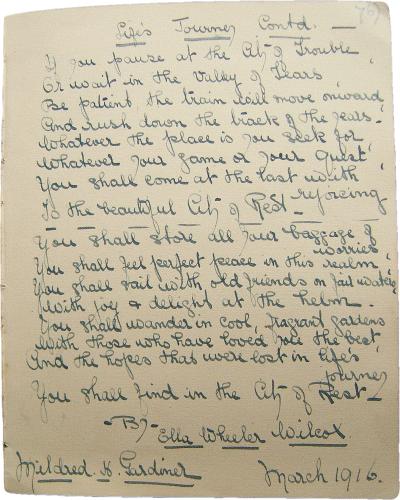 79
Life's Journey Contd. —
If you pause at the City of Trouble,
Or wait in the Valley of Tears,
Be patient the train will move onward,
And rush down the track of the years.
Whatever the place is you seek for,
Whatever your game or your Quest,
You shall come at the last with rejoicing
To the beautiful City of Rest —
You shall store all your baggage of worries,
You shall feel perfect peace in this realm,
You shall sail with old friends on fair waters,
With joy & delight at the helm.
You shall wander in cool, fragrant gardens
With those who have loved you the best,
And the hopes that were lost in life's journey
You shall find in the City of Rest —
- By -
Ella Wheeler Wilcox
Mildred H. Gardiner
March 1916.